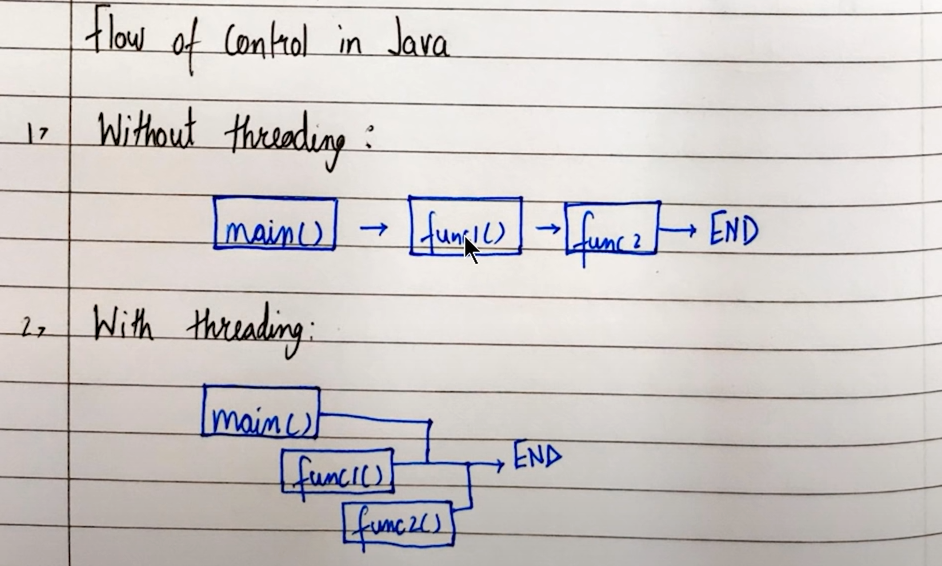 Flow of Control in Java
1> Without threading:
main() → func1() → func2 → END
2> With threading:
main()
func1() → END
func2()